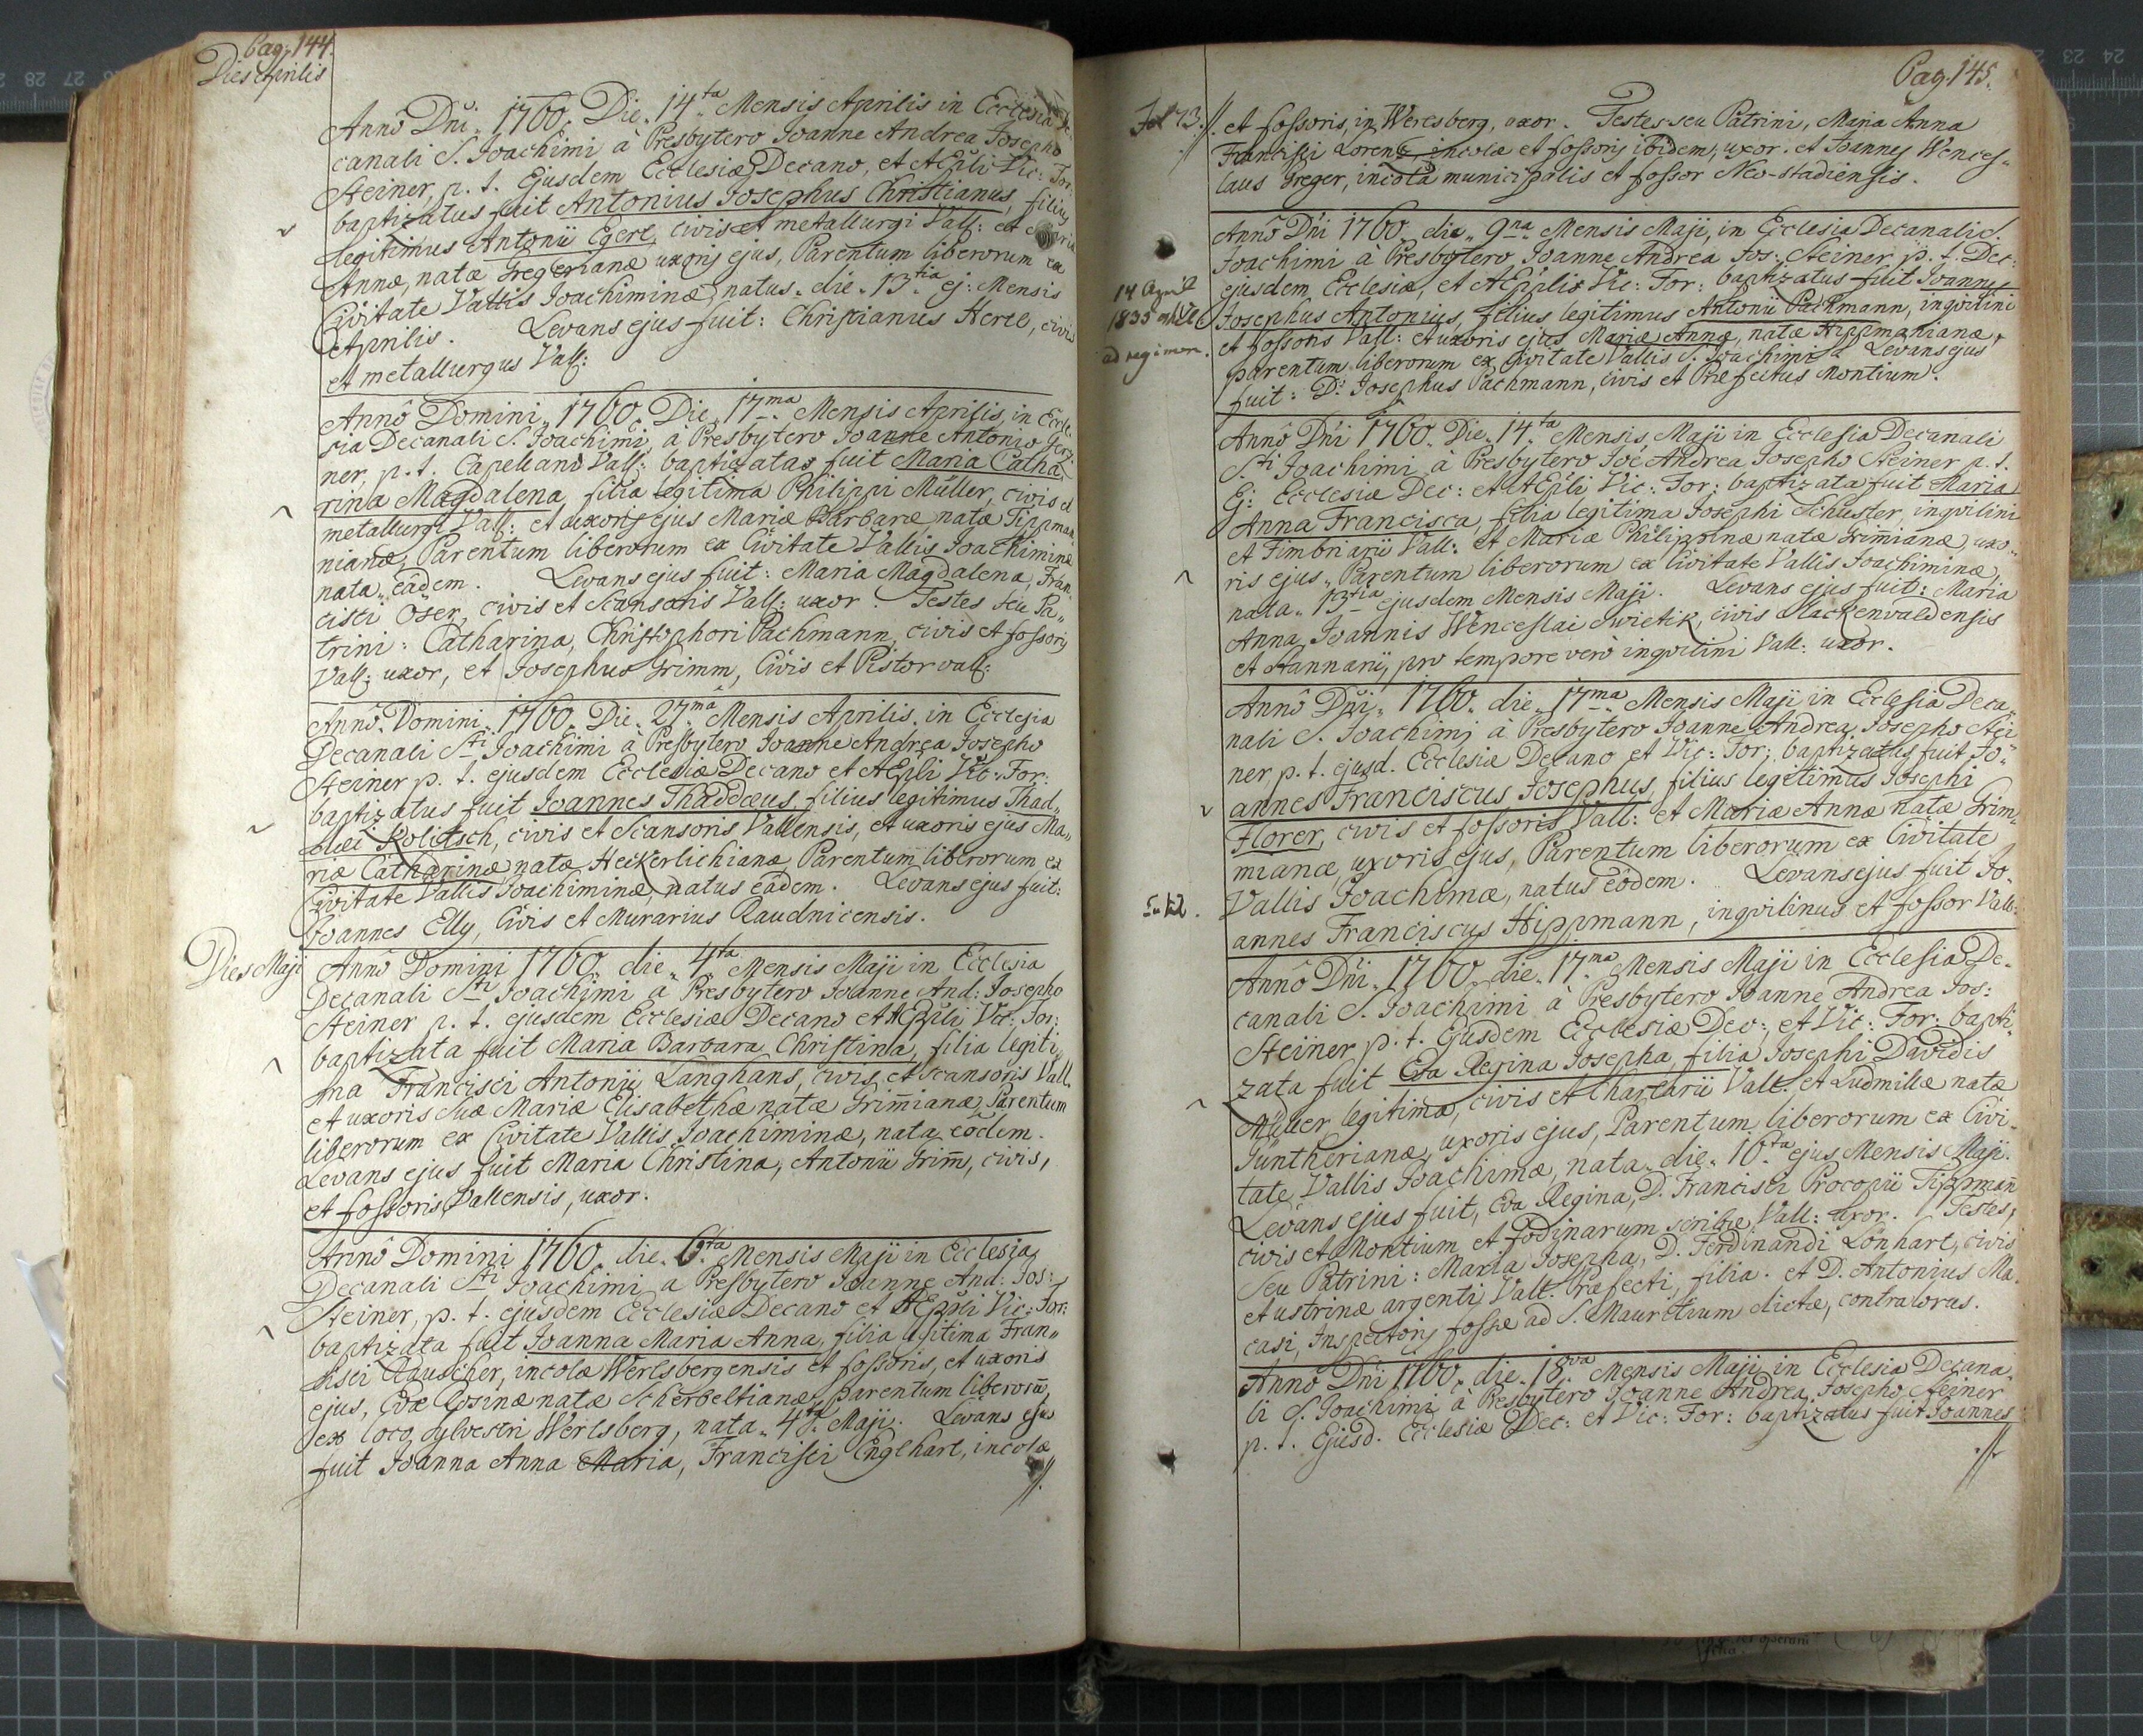 Pag. 144.
Dies Aprilis
Annô Dni. 1760. Die. 14ta Mensis Aprilis in Ecclesia De
canali S. Joachimi à Presbytero Joanne Andrea Josepho
Steiner, p. t. Ejusdem Ecclesiæ Decano, et AEpli Vic: For:
baptizatus fuit Antonius Josephus Christianus, filius
legitimus Antonii Egert, civis et metallurgi Vall: et
Annæ, natæ Gregerianæ uxoris ejus, Parentum liberorum ex
Civitate Vallis Joachiminæ, natus. die. 13tia ej: Mensis
Aprilis. Levans ejus fuit: Christianus Hertl, civis
et metallurgus Vall:
Annô Domini. 1760. Die. 17ma Mensis Aprilis, in Eccle
sia Decanali S. Joachimi, à Presbytero Joanne Antonio
ner, p. t. Capellanô Vall: baptizata fuit Maria Catha
rina Magdalena, filia legitima Philippi Müller, civis et
metallurgi Vall: et uxoris ejus Mariæ Barbaræ natæ Tippman
nianæ, Parentum liberorum ex Civitate Vallis Joachiminæ
nata eâdem. Levans ejus fuit: Maria Magdalena, Fran
cisci Öser, civis et Scansoris Vall: uxor. Testes seu Pa„
trini: Catharina, Christophori Pachmann, civis et fossoris
Vall: uxor, et Josephus Grimm, Civis et Pistor vall:
Annô Domini. 1760. Die. 27mâ Mensis Aprilis. in Ecclesia
Decanali Sti Joachimi à Presbytero Joanne Andrea Josepho
Steiner p. t. ejusdem Ecclesiæ Decano et AEpli Vic. For:
baptizatus fuit Joannes Thaddæus, filius legitimus Thad„
dæi Kolitsch, civis et Scansoris Vallensis, et uxoris ejus Ma„
riæ Catharinæ natæ Heckerlichianæ Parentum liberorum ex
Civitate Vallis Joachiminæ, natus eâdem. Levans ejus fuit:
Joannes Elly, Civis et Murarius Raudnicensis.
Dies Maji
Annô Domini 1760. die. 4ta Mensis Maji in Ecclesia
Decanali Sti Joachimi à Presbytero Joanne And: Josepho
Steiner p. t. ejusdem Ecclesiæ Decano et AEpli Vic: For:
baptizata fuit Maria Barbara Christina, filia legiti„
ma Francisci Antonii Langhans, civis et scansoris Vall.
et uxoris suæ Mariæ Elisabethæ natæ Grim̄ianæ, Parentum
liberorum ex Civitate Vallis Joachiminæ, nata eôdem.
Levans ejus fuit Maria Christina, Antonii Grim̄, civis,
et fossoris Vallensis, uxor.
Annô Domini 1760. die. 6ta Mensis Maji in Ecclesia
Decanali Sti Joachimi a Presbytero Joanne And: Jos:
Steiner, p. t. ejusdem Ecclesiæ Decano et AEpli Vic: For:
baptizata fuit Joanna Maria Anna, filia legitima Fran„
cisci Rauscher, incolæ Werlsbergensis et fossoris, et uxoris
ejus, Evæ Rosinæ natæ Scherbeltianæ, parentum liberorū,
ex loco Sylvestri Werlsberg, nata. 4ta Maji. Levans ejus
fuit Joanna Anna Maria, Francisci Englhart, incolæ
//.
Pag. 145.
Fol 73.
//. et fossoris, in Weresberg, uxor. Testes seu Patrini, Maria Anna
Francisci Lorenz, incolæ et fossoris ibidem, uxor. et Joannes Wences„
laus Greger, incola municipalis et fossor Neo-stadiensis.
14 April
1835
ad regimen.
Annô Dñi 1760. die. 9na Mensis Maji, in Ecclesia Decanali S.
Joachimi à Presbytero Joanne Andrea Jos: Steiner p. t. Dec:
ejusdem Ecclesiæ, et AEpplis Vic: For: baptizatus fuit Joannes
Josephus Antonius, filius legitimus Antonii Pachmann, inqvilini
et fossoris Vall: et uxoris ejus Mariæ Annæ, natæ Hippmanianæ,
parentum liberorum ex Civitate Vallis S. Joachimi. Levans ejus
fuit: D: Josephus Pachmann, civis et Præfectus Montium.
Annô Dñi 1760. Die. 14ta Mensis Maji in Ecclesia Decanali
Sti Joachimi à Presbytero Joe Andrea Josepho Steiner p. t.
Ej: Ecclesiæ Dec: et AEpli Vic: For: baptizata fuit Maria
Anna Francisca, filia legitima Josephi Schuster, inqvilini
et Fimbriarii Vall: et Mariæ Philippinæ natæ Grimianæ, uxo„
ris ejus, Parentum liberorum ex Civitate Vallis Joachiminæ,
nata. 13tia ejusdem Mensis Maji. Levans ejus fuit: Maria
Anna, Joannis Wenceslai Swietik, civis Slackenvaldensis
et Stannarii, pro tempore verò inqvilini Vall: uxor.
Annô Dñi. 1760. die. 17ma Mensis Maji in Ecclesia Deca„
nali S. Joachimi à Presbytero Joanne Andrea Josepho Stei
ner, p. t. ejusd. Ecclesiæ Decano et Vic: For: baptizatus fuit Jo„
annes Franciscus Josephus, filius legitimus Josephi
Florer, civis et fossoris Vall: et Mariæ Annæ natæ Grim
mianæ uxoris ejus, Parentum liberorum ex Civitate
Vallis Joachimæ, natus eôdem. Levans ejus fuit Jo„
annes Franciscus Hippmann, inqvilinus et fossor Vall:
Annô Dñi. 1760. die. 17ma Mensis Maji in Ecclesia De„
canali S. Joachimi à Presbytero Joanne Andrea Jos:
Steiner p. t. Ejusdem Ecclesiæ Dec: et Vic: For: bapti„
zata fuit Eva Regina Josepha, filia Josephi Davidis
Müller legitima, civis et Chartarii Vall. et Ludmillæ natæ
Güntherianæ, uxoris ejus, Parentum liberorum ex Civi„
tate Vallis Joachimæ, nata. die. 16ta ejus Mensis Maji.
Levans ejus fuit, Eva Regina, D. Francisci Procopii Tippman̄
civis et Montium et fodinarum scribæ Vall: uxor. Testes,
Seu Patrini: Maria Josepha, D. Ferdinandi Lönhart, civis
et ustrinæ argenti Vall. Præfecti, filia. et D. Antonius Ma„
casi, Inspectoris fossæ ad S. Mauritium dictæ, contralorus.
Annô Dñi 1760. die. 18va Mensis Maji, in Ecclesia Decana„
li S. Joachimi à Presbytero Joanne Andrea Josepho Steiner
p. t. Ejusd. Ecclesiæ Dec: et Vic: For: baptizatus fuit Joannes
.//.